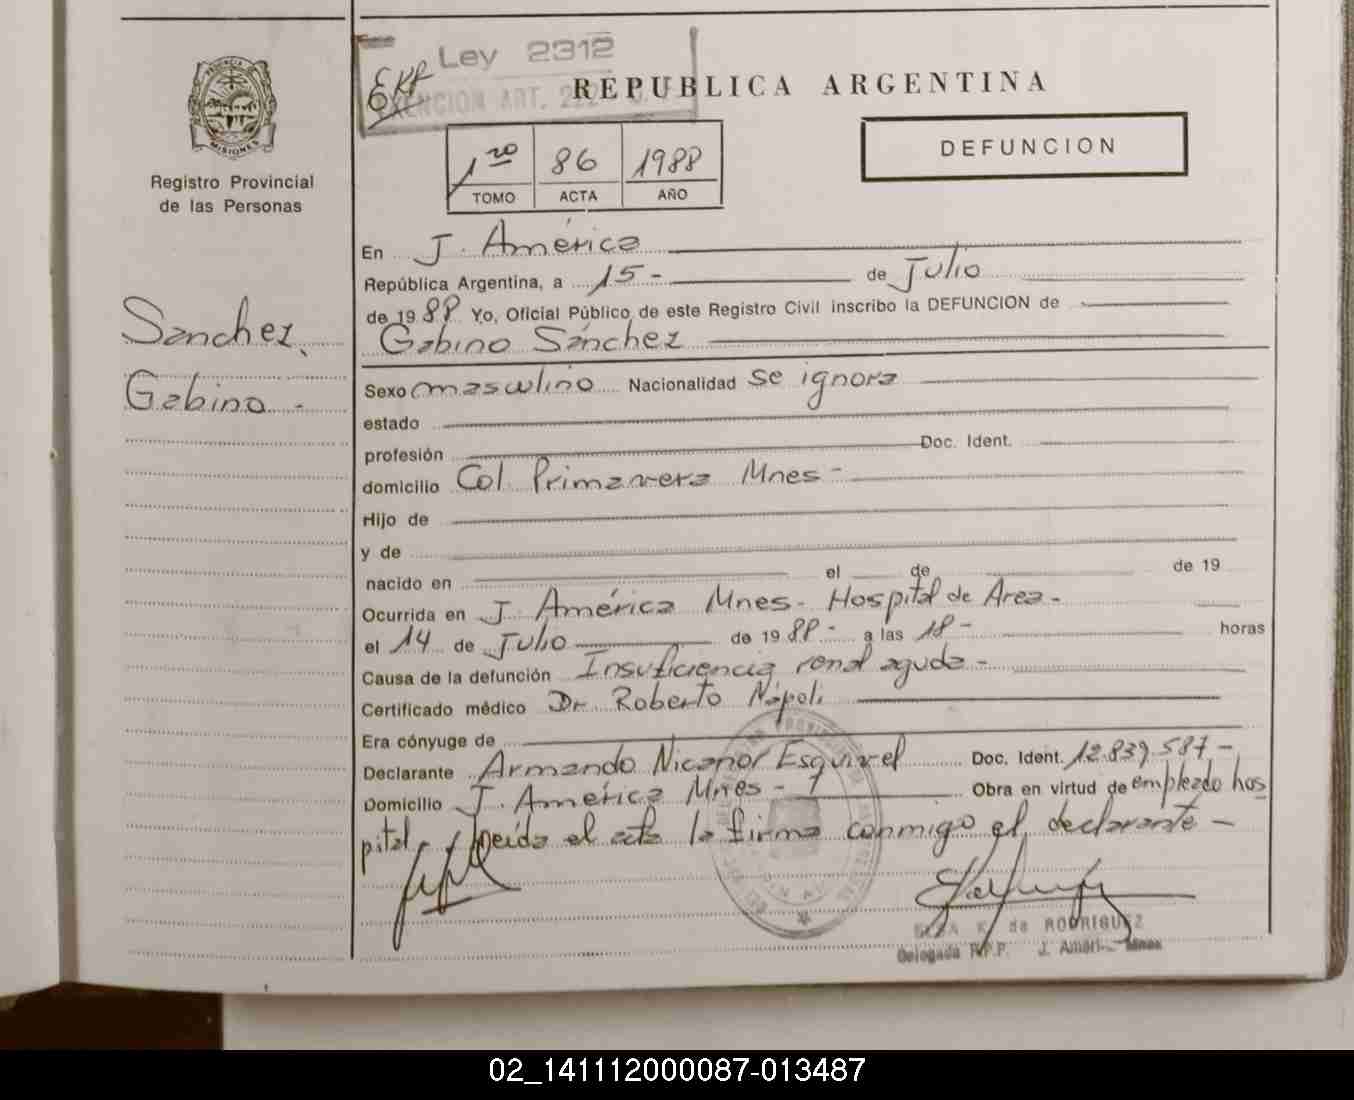 PROVINCIA
MISIONES
Registro Provincial
de las Personas
Sanchez
Gabino -
Ley 2312
EXENCION ART. 222
REPUBLICA ARGENTINA
1ro 86 1988
TOMO ACTA AÑO
DEFUNCION
En J. América
República Argentina, a 15 - de Julio
de 1988 Yo, Oficial Público de este Registro Civil inscribo la DEFUNCION de
Gabino Sánchez
Sexo masculino Nacionalidad se ignora
estado
profesión Doc. Ident.
domicilio Col. Primavera Mnes -
Hijo de
y de
nacido en el de de 19
Ocurrida en J. América Mnes - Hospital de Area -
el 14 de Julio de 1988 - a las 18 - horas
Causa de la defunción Insuficiencia renal aguda -
Certificado médico Dr. Roberto Nápoli
Era cónyuge de
Declarante Armando Nicanor Esquivel Doc. Ident. 12.839.587 -
Domicilio J. América Mnes - Obra en virtud de empleado hos
pital - Leída el acta la firma conmigo el declarante -
de RODRIGUEZ
Delegada R.P.P. J. Améri Mnes
02_141112000087-013487